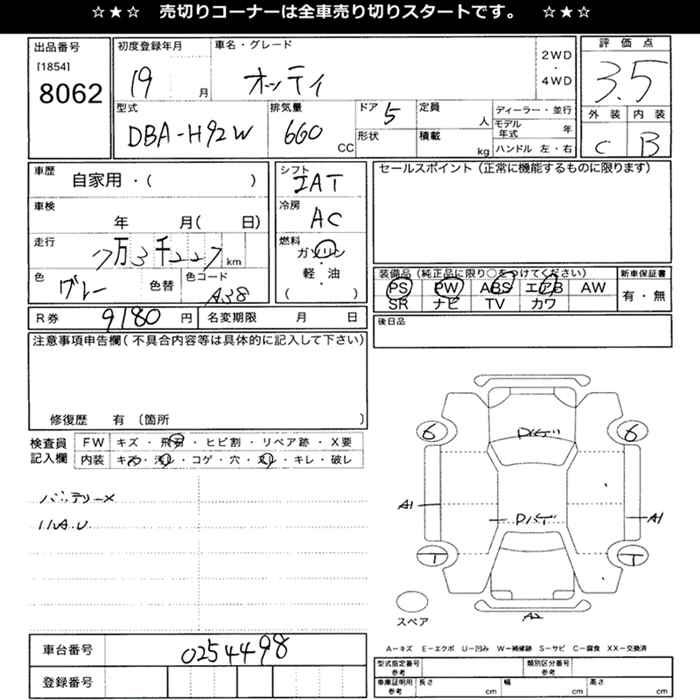 ☆★☆ 売切りコーナーは全車売り切りスタートです。 ☆★☆
出品番号
[1854]
8062
初度登録年月
19 月
車名・グレード
オッティ
2WD
・
4WD
評価点
3.5
外装 内装
C B
型式
DBA-H92W
排気量
660 CC
ドア 5
形状
定員 人
積載 kg
ディーラー・並行
モデル年式 年
ハンドル 左・右
車歴
自家用・( )
車検
年 月( 日)
走行
7万3千227 km
色
グレー
色替
色コード
A38
シフト
IAT
冷房
AC
燃料
ガソリン
・
軽・油
( )
セールスポイント(正常に機能するものに限ります)
装備品(純正品に限り○をつけてください)
PS PW ABS エアB AW
SR ナビ TV カワ
新車保証書
有・無
R券 9180 円
名変期限 月 日
後日品
注意事項申告欄(不具合内容等は具体的に記入して下さい)
修復歴 有(箇所 )
検査員
記入欄
FW キズ・飛石・ヒビ割・リペア跡・X要
内装 キズ・汚れ・コゲ・穴・スレ・キレ・破レ
バッテリーX
6 6
A1 A1
スペア
A2
A-キズ E-エクボ U-凹み W-補修跡 S-サビ C-腐食 XX-交換済
車台番号
0254498
登録番号
型式指定番号
参考
類別区分番号
参考
車庫証明用
参考
長さ cm
幅 cm
高さ cm